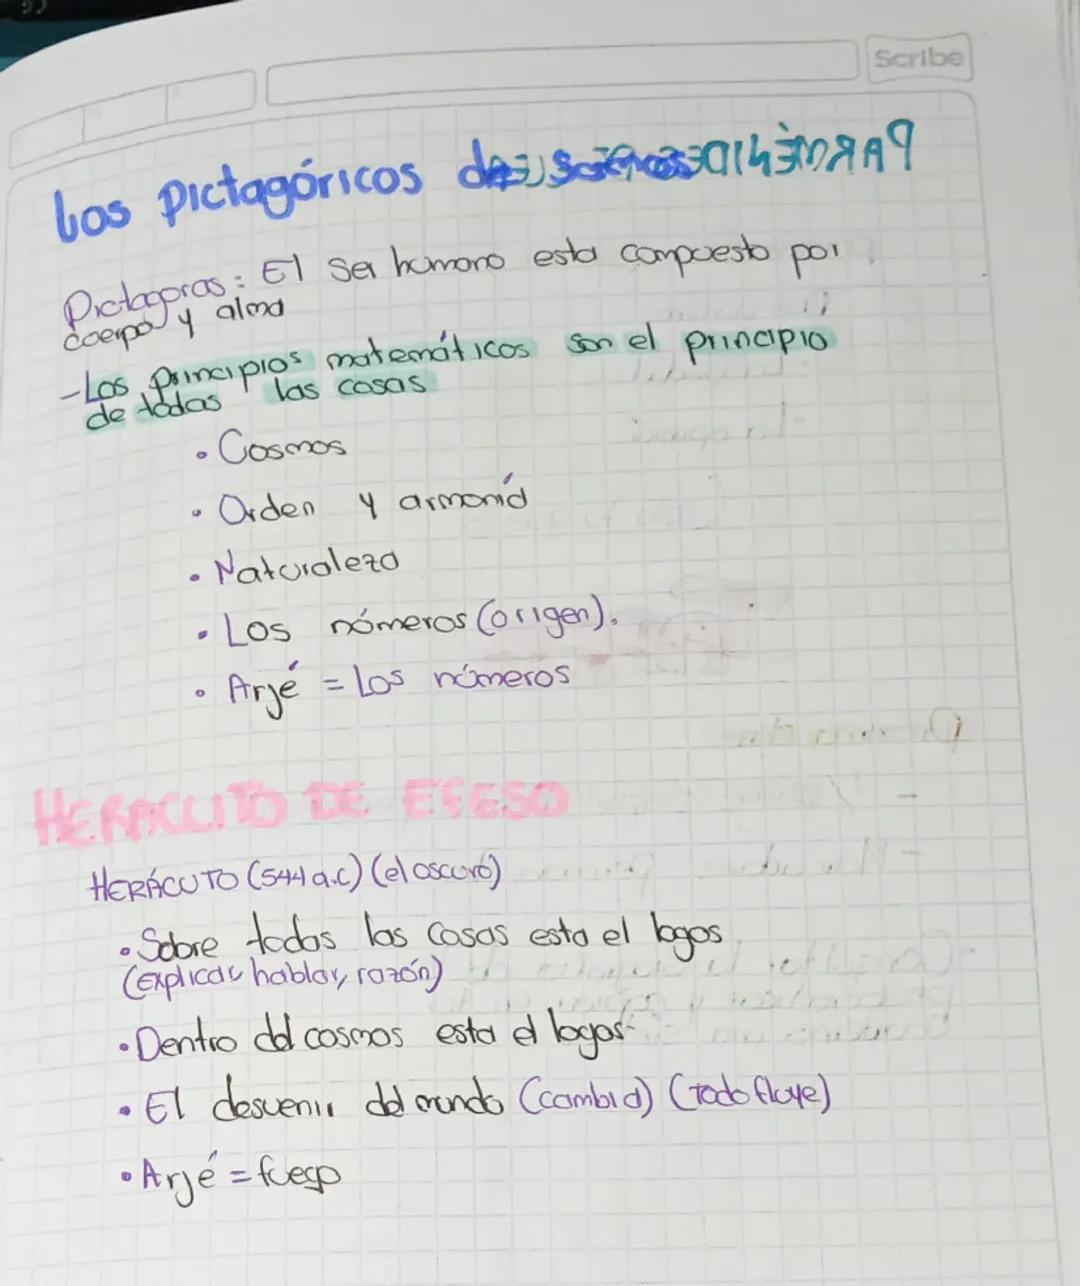 Scribe
Los Pictagóricos de Samos
Pictagoras: El ser humano esta compuesto por
cuerpo y alma
-Los principios matemáticos son el principio
de todas las cosas
• Cosmos
• Orden y armoníd
• Naturaleza
• Los números (origen).
• Arjé = Los números
HERACLITO DE EFESO
HERÁCLITO (544 a.c) (el oscuro)
• Sobre todas las cosas esta el logos
(explicar, hablar, razón)
• Dentro del cosmos esta el logos
• El desvenir del mundo (cambia) (Todo fluye)
• Arjé = fuego